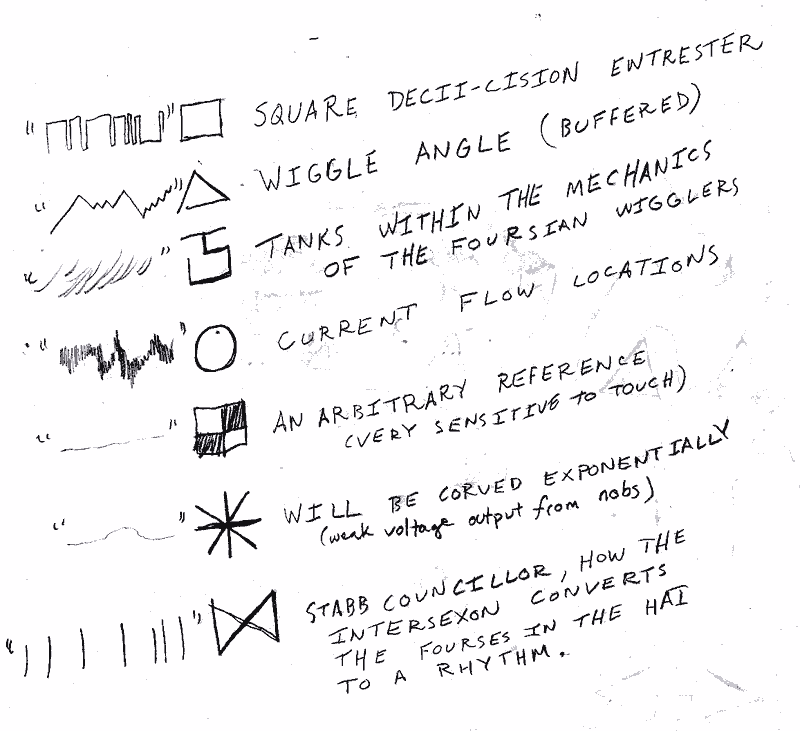 SQUARE DECII-CISION ENTRESTER
WIGGLE ANGLE (BUFFERED)
TANKS WITHIN THE MECHANICS
OF THE FOURSIAN WIGGLERS
CURRENT FLOW LOCATIONS
AN ARBITRARY REFERENCE
(VERY SENSITIVE TO TOUCH)
WILL BE CORVED EXPONENTIALLY
(weak voltage output from nobs)
STABB COUNCILLOR, HOW THE
INTERSEXON CONVERTS
THE FOURSES IN THE HAI
TO A RHYTHM.